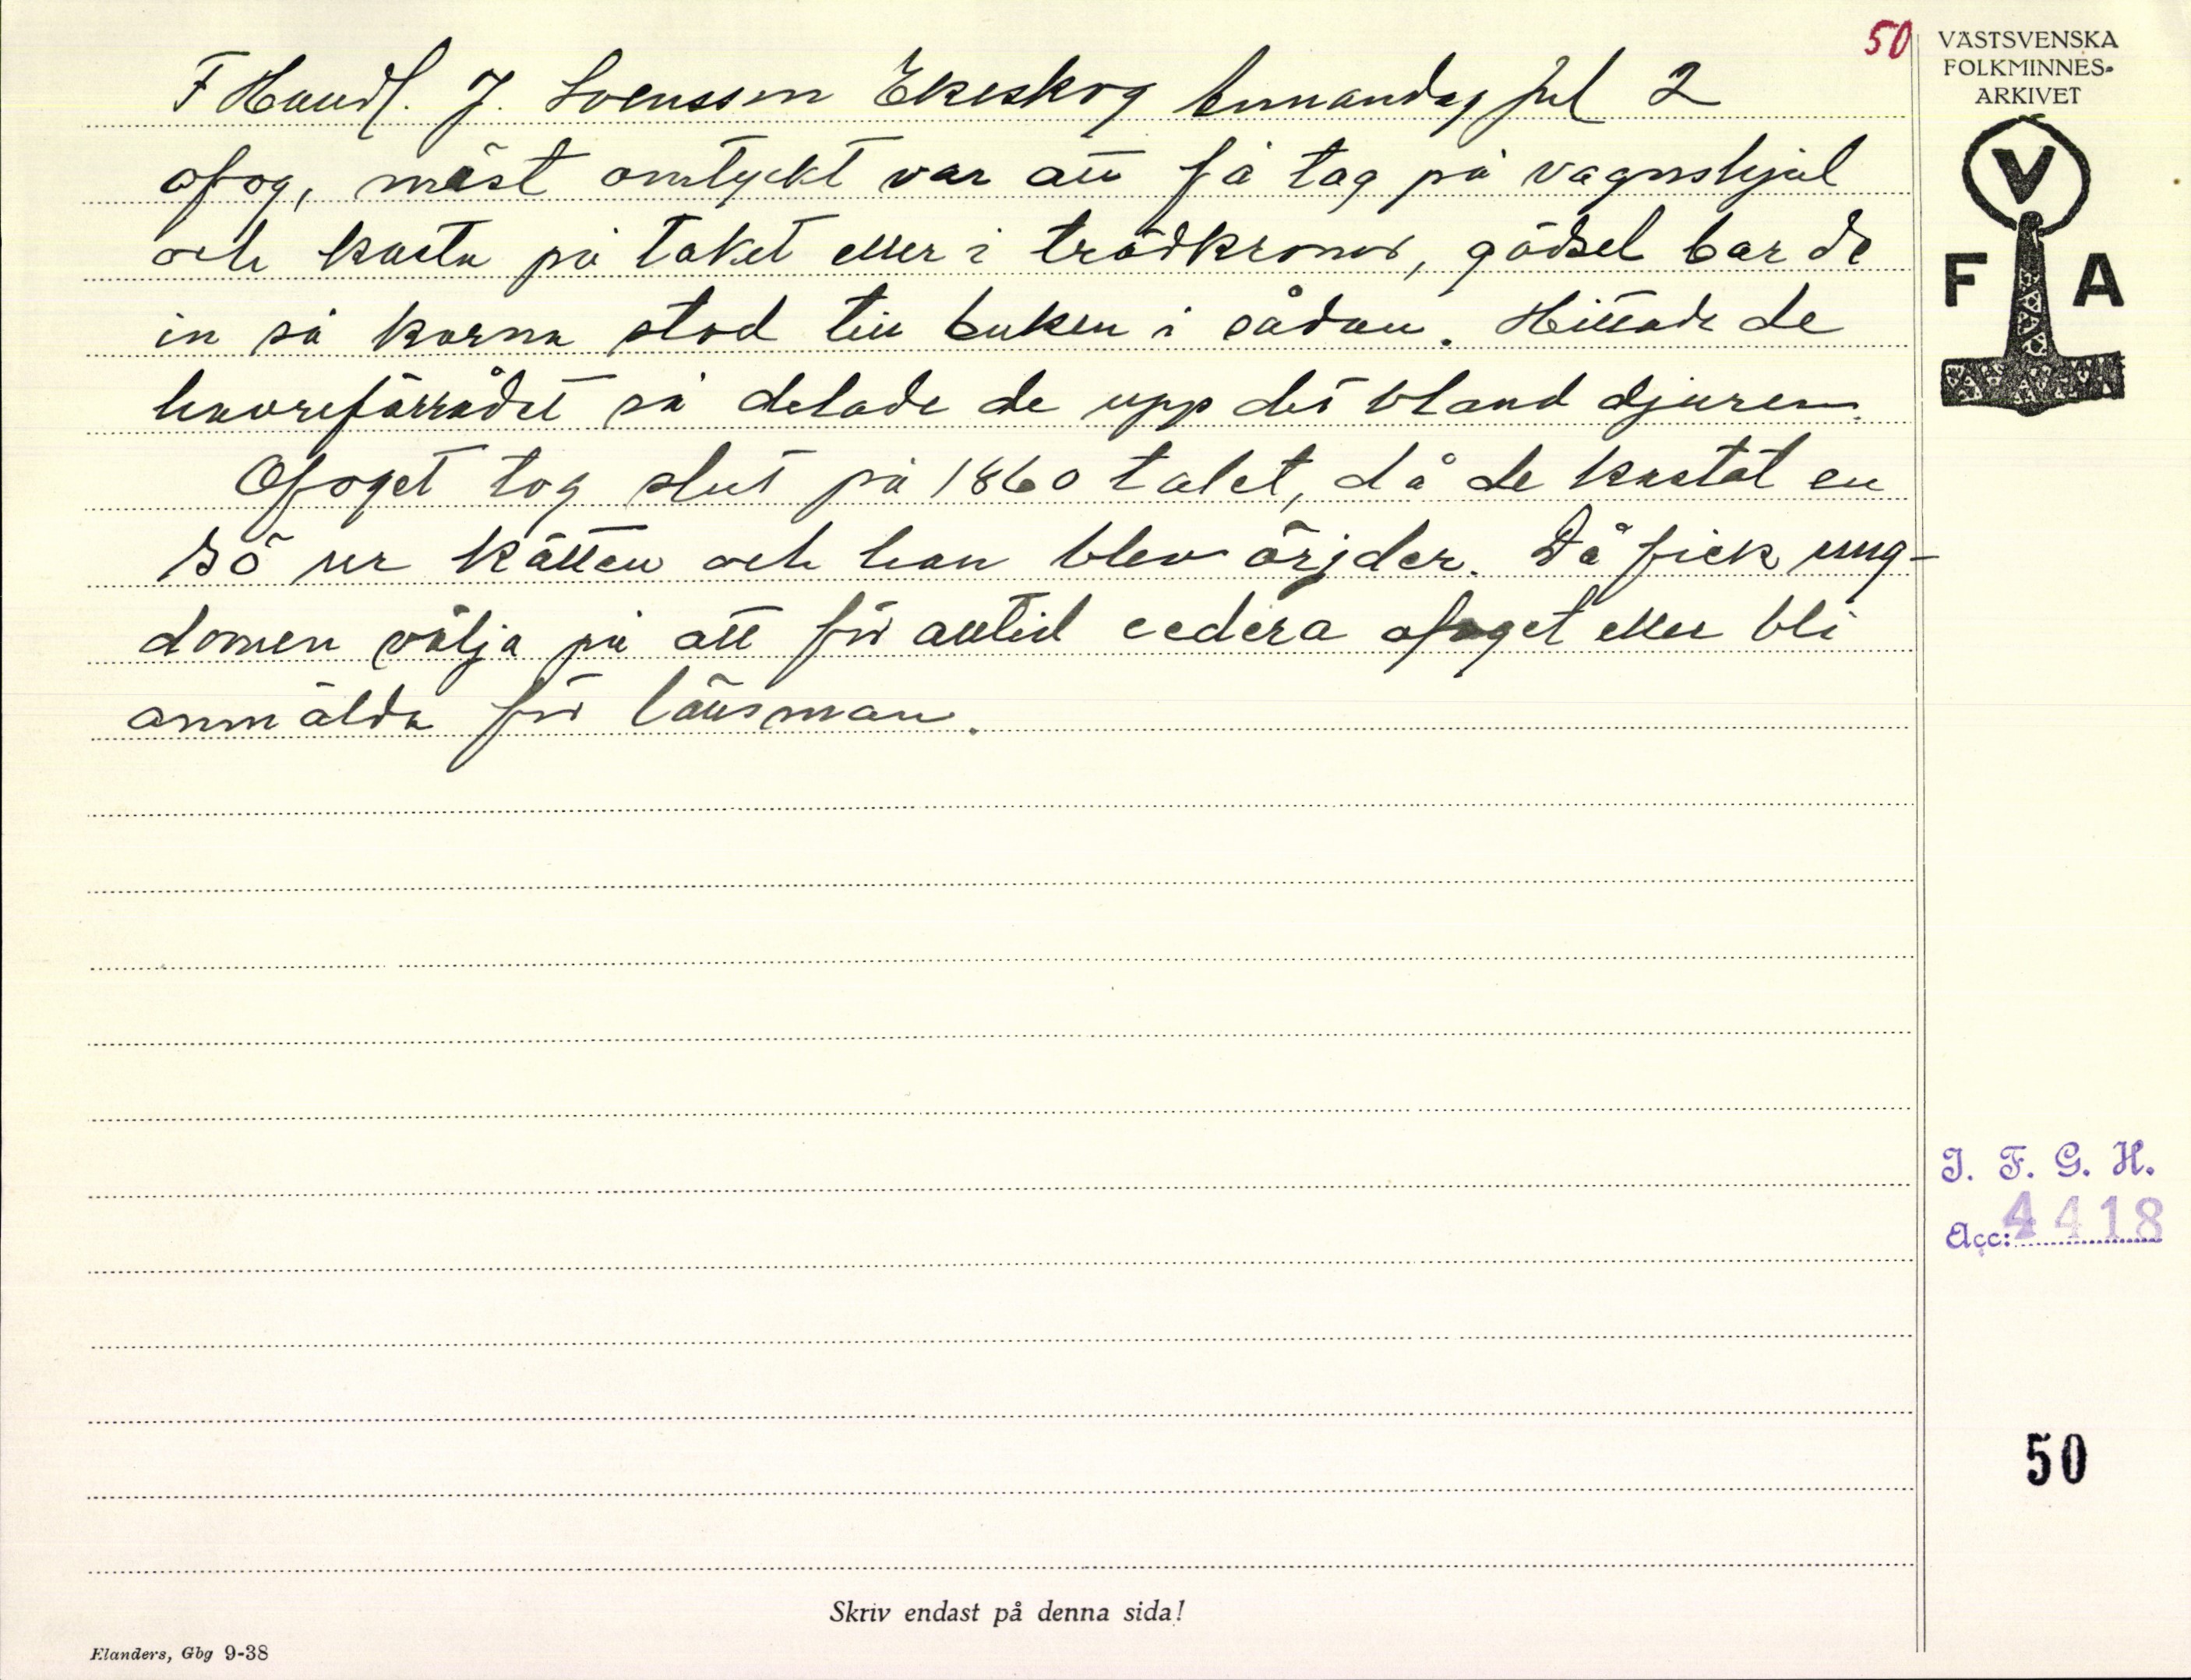 50
F Handl. J. Svensson Ekeskog Annandag jul 2
ofog, mäst omtyckt var att få tag på vagnshjul
och kasta på taket eller i trädkronor, gödsel bar de
in så korna stod till buken i sådan. Hittade de
havreförrådet så delade de upp det bland djuren.
Ofoget tog slut på 1860 talet, då de kastat en
so ur kätten och han blev
Då fick ung-
domen välja på att för alltid cedera ofoget eller bli
anmälda för länsman.
VÄSTSVENSKA
FOLKMINNES-
ARKIVET
V
F A
I. F. G. H.
Acc: 4418
50
Skriv endast på denna sida!
Elanders, Gbg 9-38